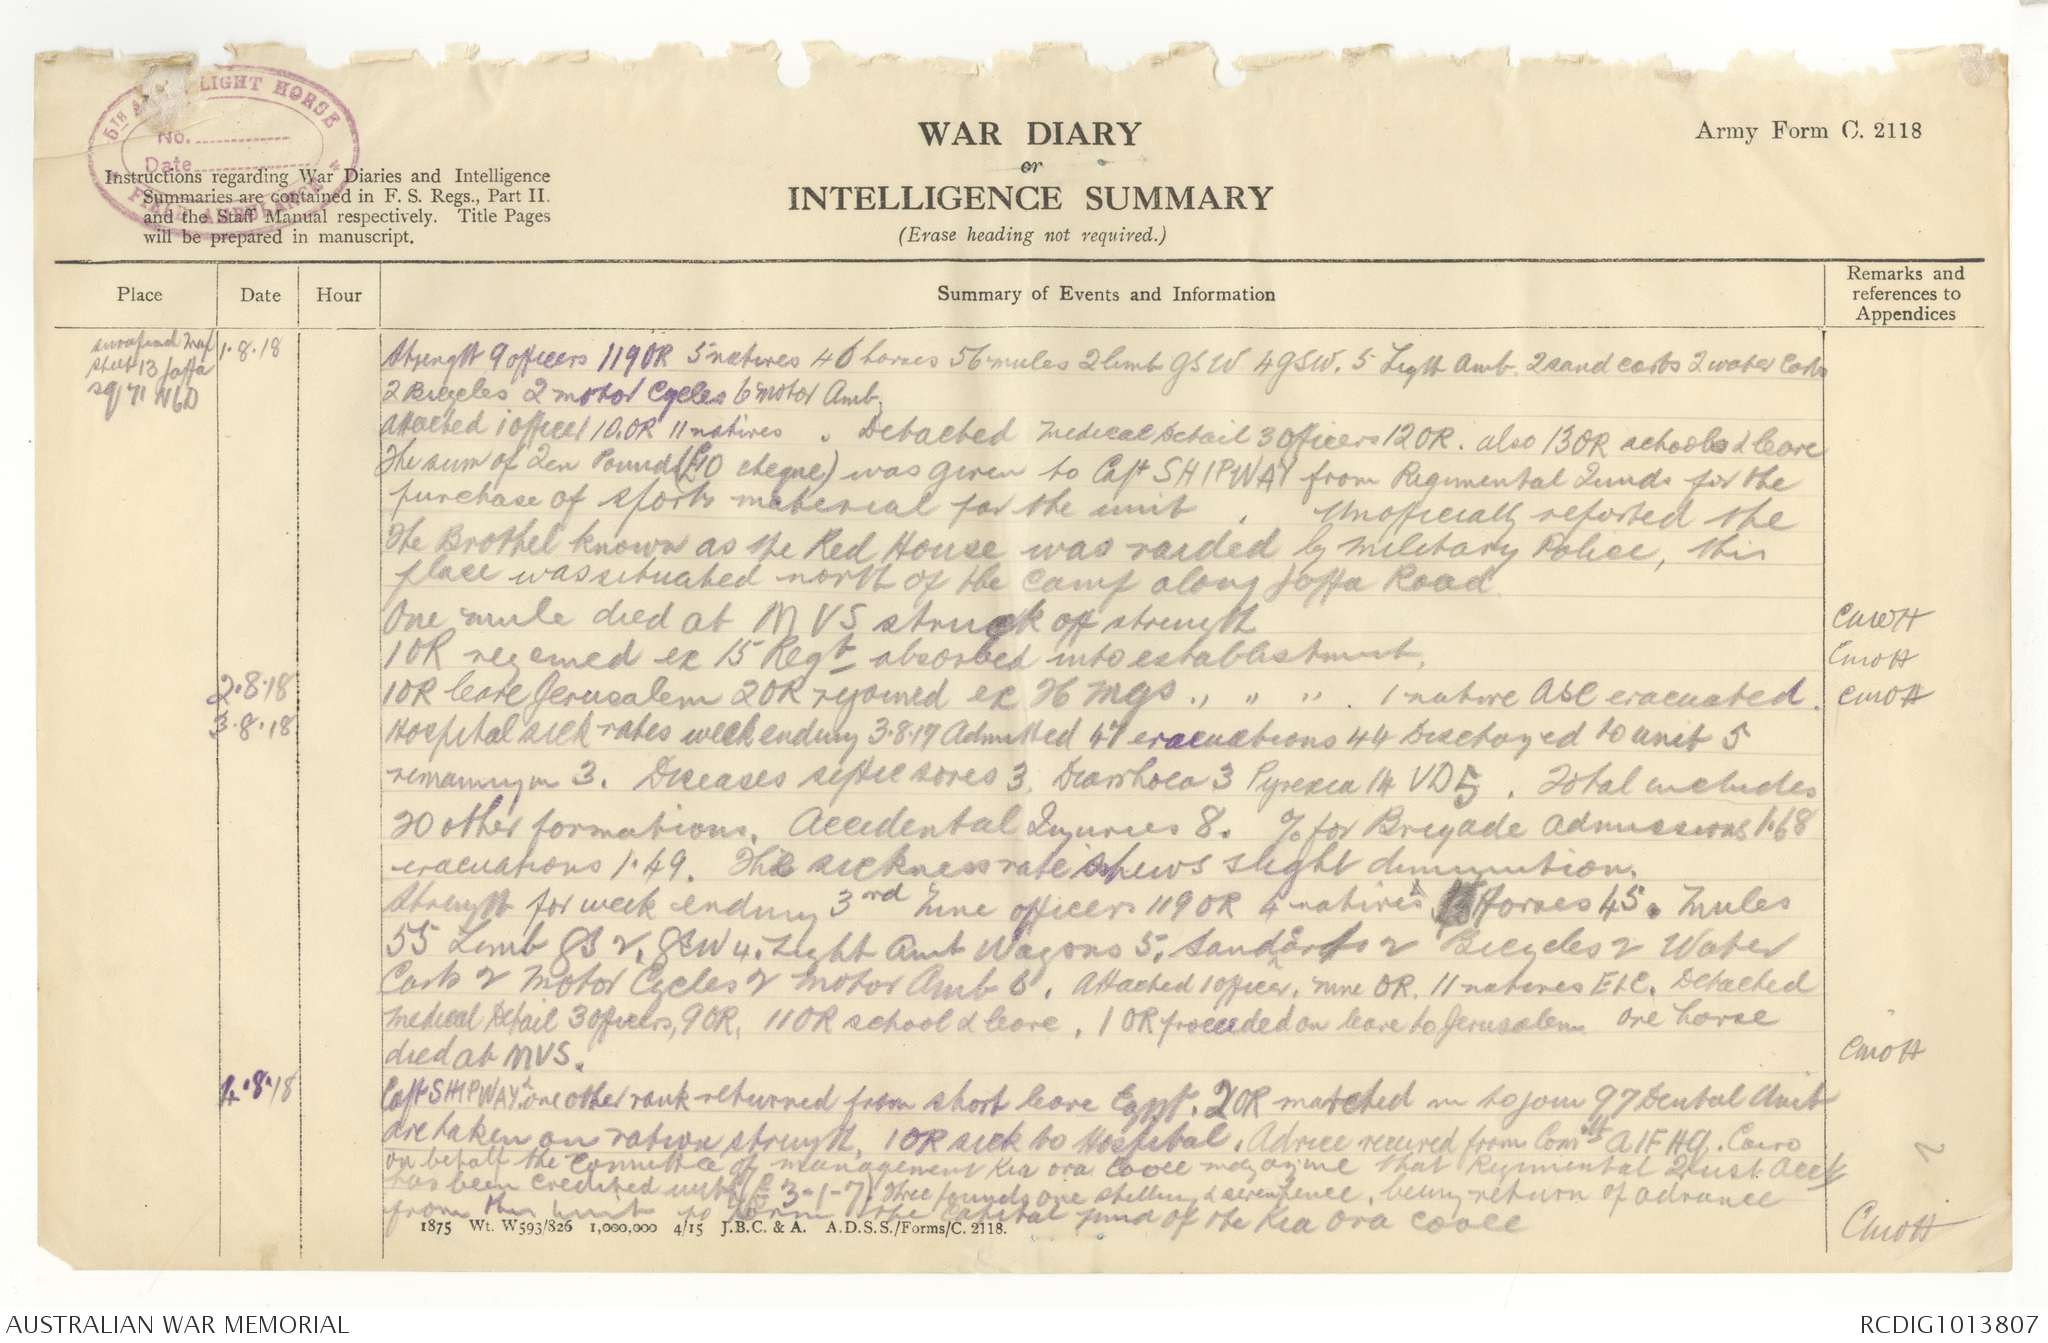 5TH A. LIGHT HORSE
No.
Date
FIELD AMBULANCE
WAR DIARY
or
INTELLIGENCE SUMMARY
(Erase heading not required.)
Army Form C. 2118
Instructions regarding War Diaries and Intelligence
Summaries are contained in F. S. Regs., Part II.
and the Staff Manual respectively. Title Pages
will be prepared in manuscript.
Place Date Hour Summary of Events and Information Remarks and references to Appendices
Surafend Map
Sheet 13 Jaffa
Sq 71 N6D
1.8.18 Strength 9 officers 119 OR 5 natives 46 horses 56 mules 2 limb GSW 4 GSW. 5 Light Amb. 2 sand carts 2 water Carts
2 Bicycles 2 motor Cycles 6 motor Amb.
Attached 1 officer 10.OR 11 natives . Detached Medical Detail 3 Officers 12 OR. also 13 OR schools & leave
The sum of Ten Pounds (£10 cheque) was given to Capt SHIPWAY from Regimental Funds for the
purchase of sports material for the unit . Unofficially reported the
The Brothel known as the Red House was raided by Military Police, this
place was situated north of the camp along Jaffa Road
One mule died at MVS struck off strength CMOH
1 OR rejoined ex 15 Regt absorbed into establishment. CMOH
2.8.18 1 OR leave Jerusalem 2 OR rejoined ex MGS ,, ,, ,, . 1 native ASC evacuated. CMOH
3.8.18 Hospital sick rates week ending 3.8.17 Admitted 47 evacuations 44 Discharged to unit 5
remaining in 3. Diseases septic sores 3. Diarrhoea 3 Pyrexia 14 VD 5 . Total includes
20 other formations. Accidental Injuries 8. % for Brigade admissions 1.68
evacuations 1.49. The sickness rate shews slight diminution.
Strength for week ending 3rd Nine officers 119 OR 4 natives Horses 45. Mules
55 Limb GS 2. GSW 4. Light Amb Wagons 5. Sand Carts 2 Bicycles 2 Water
Carts 2 Motor Cycles 2 Motor Amb 6. Attached 1 officer. nine OR. 11 natives ELC. Detached
Medical Detail 3 officers, 9 OR, 11 OR school & leave. 1 OR proceeded on leave to Jerusalem One horse
died at MVS. CMOH
4.8.18 Capt SHIPWAY & one other rank returned from short leave Egypt. 2 OR marched in to join 97 Dental Unit
are taken on ration strength. 1 OR sick to Hospital. Advice received from Comdt AIF HQ. Cairo
on behalf the Committee of management Kia Ora Cooee magazine that Regimental Trust Acct
has been credited with (£3-1-7) Three pounds one shilling & sevenpence, being return of advance
from this unit to form the capital fund of the Kia Ora Cooee CMOH
1875 Wt. W593/826 1,000,000 4/15 J.B.C. & A. A.D.S.S./Forms/C. 2118.
AUSTRALIAN WAR MEMORIAL
RCDIG1013807